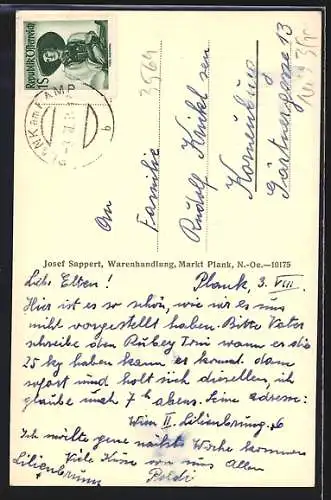 Republik Österreich
1S
PLANK am KAMP
3564
An
Familie
Rudolf Knikl sen
Korneuburg
Gärtnergasse 13
Josef Sappert, Warenhandlung, Markt Plank, N.-Oe.—10175
Plank, 3. VIII.
Lieb. Eltern!
Hier ist es so schön, wie wir es uns
nicht vorgestellt haben. Bitte Vater
schreibe den Toni wann er die
25 kg haben kann er kommt dann
sofort und holt sich dieselben, ich
glaube nach 7h abens. Seine Adresse:
Wien II. Lilienbrung. 6
Ich möchte gerne nächste Woche kommen
Viele Küsse von uns Allen
Lilienbrunn
Poldi